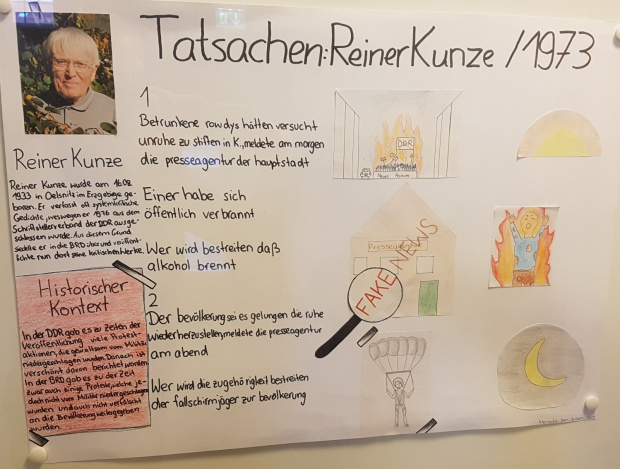 Tatsachen: Reiner Kunze / 1973
Reiner Kunze
Reiner Kunze wurde am 16.08.
1933 in Oelsnitz im Erzgebirge ge-
boren. Er verfasst oft systemkritische
Gedichte, weswegen er 1976 aus dem
Schriftstellerverband der DDR ausge-
schlossen wurde. Aus diesem Grund
siedelte er in die BRD über und veröffent-
lichte nun dort seine kritischen Werke.
Historischer
Kontext
In der DDR gab es zu Zeiten der
Veröffentlichung viele Protest-
aktionen, die gewaltsam vom Militär
niedergeschlagen wurden. Danach ist
verschönt davon berichtet worden.
In der BRD gab es zu der Zeit
zwar auch einige Proteste, welche je-
doch nicht vom Militär niedergeschlagen
wurden und auch nicht verfälscht
an die Bevölkerung weitergegeben
wurden.
1
Betrunkene rowdys hätten versucht
unruhe zu stiften in K., meldete am morgen
die presseagentur der hauptstadt
Einer habe sich
öffentlich verbrannt
Wer wird bestreiten daß
alkohol brennt
2
Der bevölkerung sei es gelungen die ruhe
wiederherzustellen, meldete die presseagentur
am abend
Wer wird die zugehörigkeit bestreiten
der fallschirmjäger zur bevölkerung
DDR
FAKE NEWS